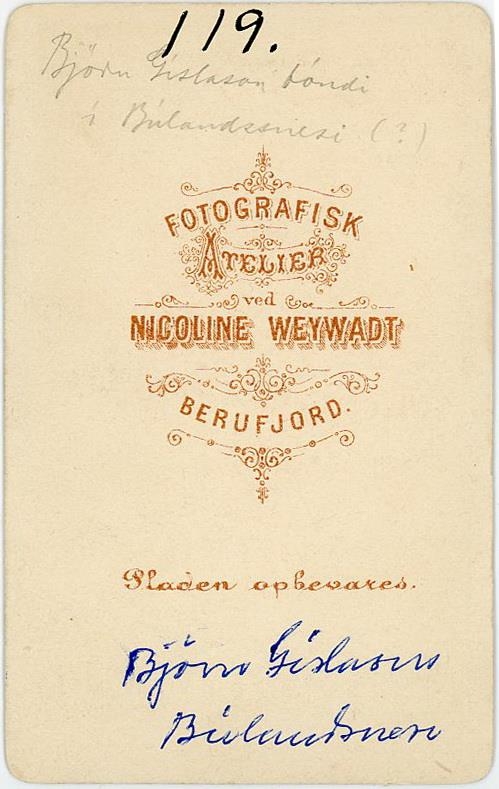 119.
Björn Gíslason bóndi
í Búlandssnesi (?)
FOTOGRAFISK
ATELIER
ved
NICOLINE WEYWADT
BERUFJORD.
Pladen opbevares.
Björn Gíslason
Búlandsnesi